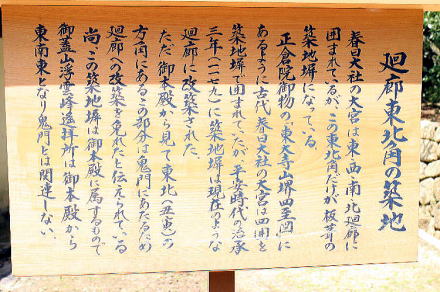 廻廊東北角の築地
春日大社の大宮は東・西・南・北廻廊に
囲まれているが、この東北角だけが板葺の
築地塀になっている。
正倉院御物の「東大寺山堺四至図」に
あるように古代、春日大社の大宮は四囲を
築地塀で囲まれていたが、平安時代の治承
三年(一一七九)に築地塀は現在のような
廻廊に改築された。
ただ御本殿から見て東北(丑寅)の
方角にあるこの部分は鬼門にあたるため
廻廊への改築を免れたと伝えられている
尚、この築地塀は御本殿に属するもので
御蓋山浮雲峰遙拝所は御本殿から
東南東となり鬼門には関連しない。